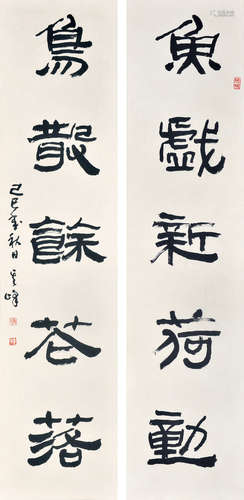 魚戲新荷動
鳥散餘花落
己巳年秋日峰